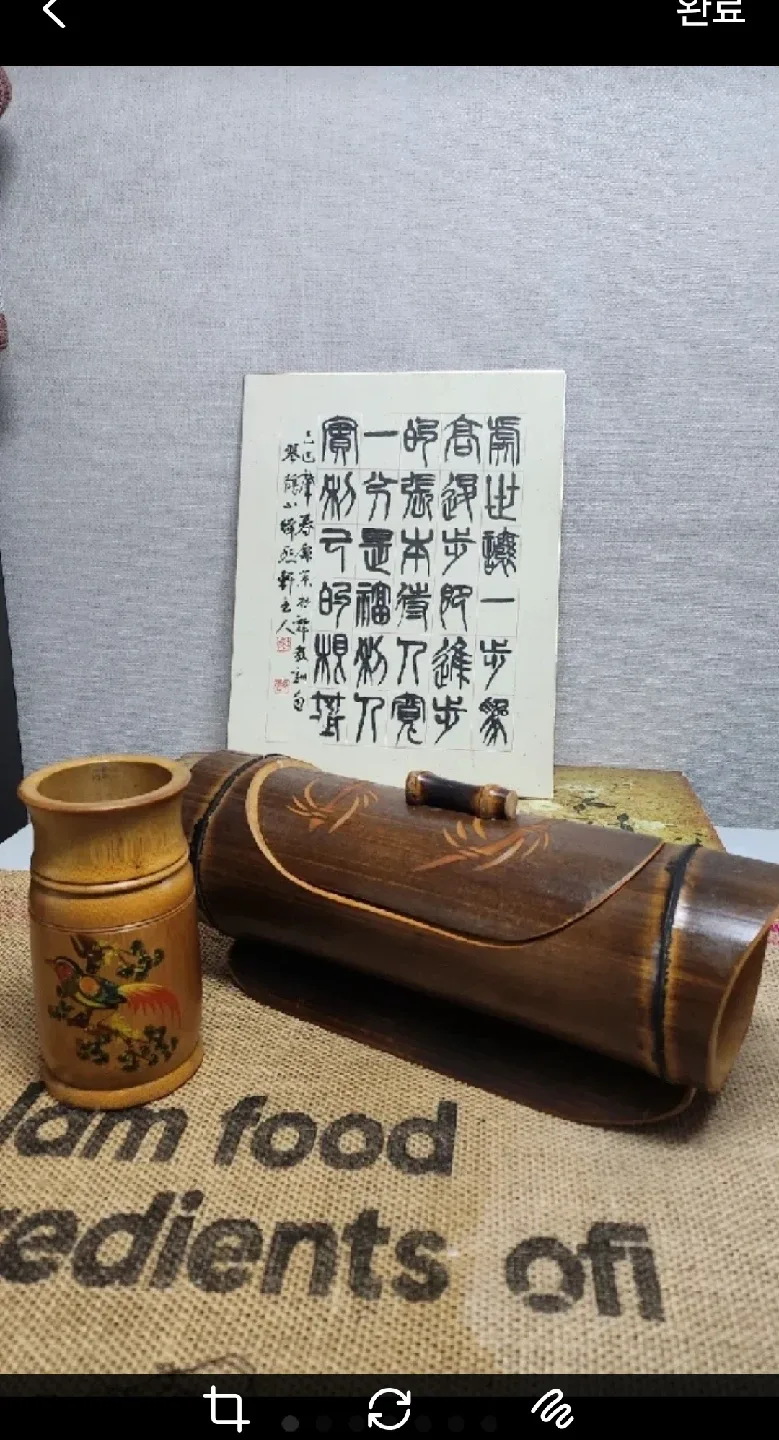 완료
處世讓一步爲
高退步即進步
的張本待人寬
一分是福利人
實利己的根基
lam food
edients ofi